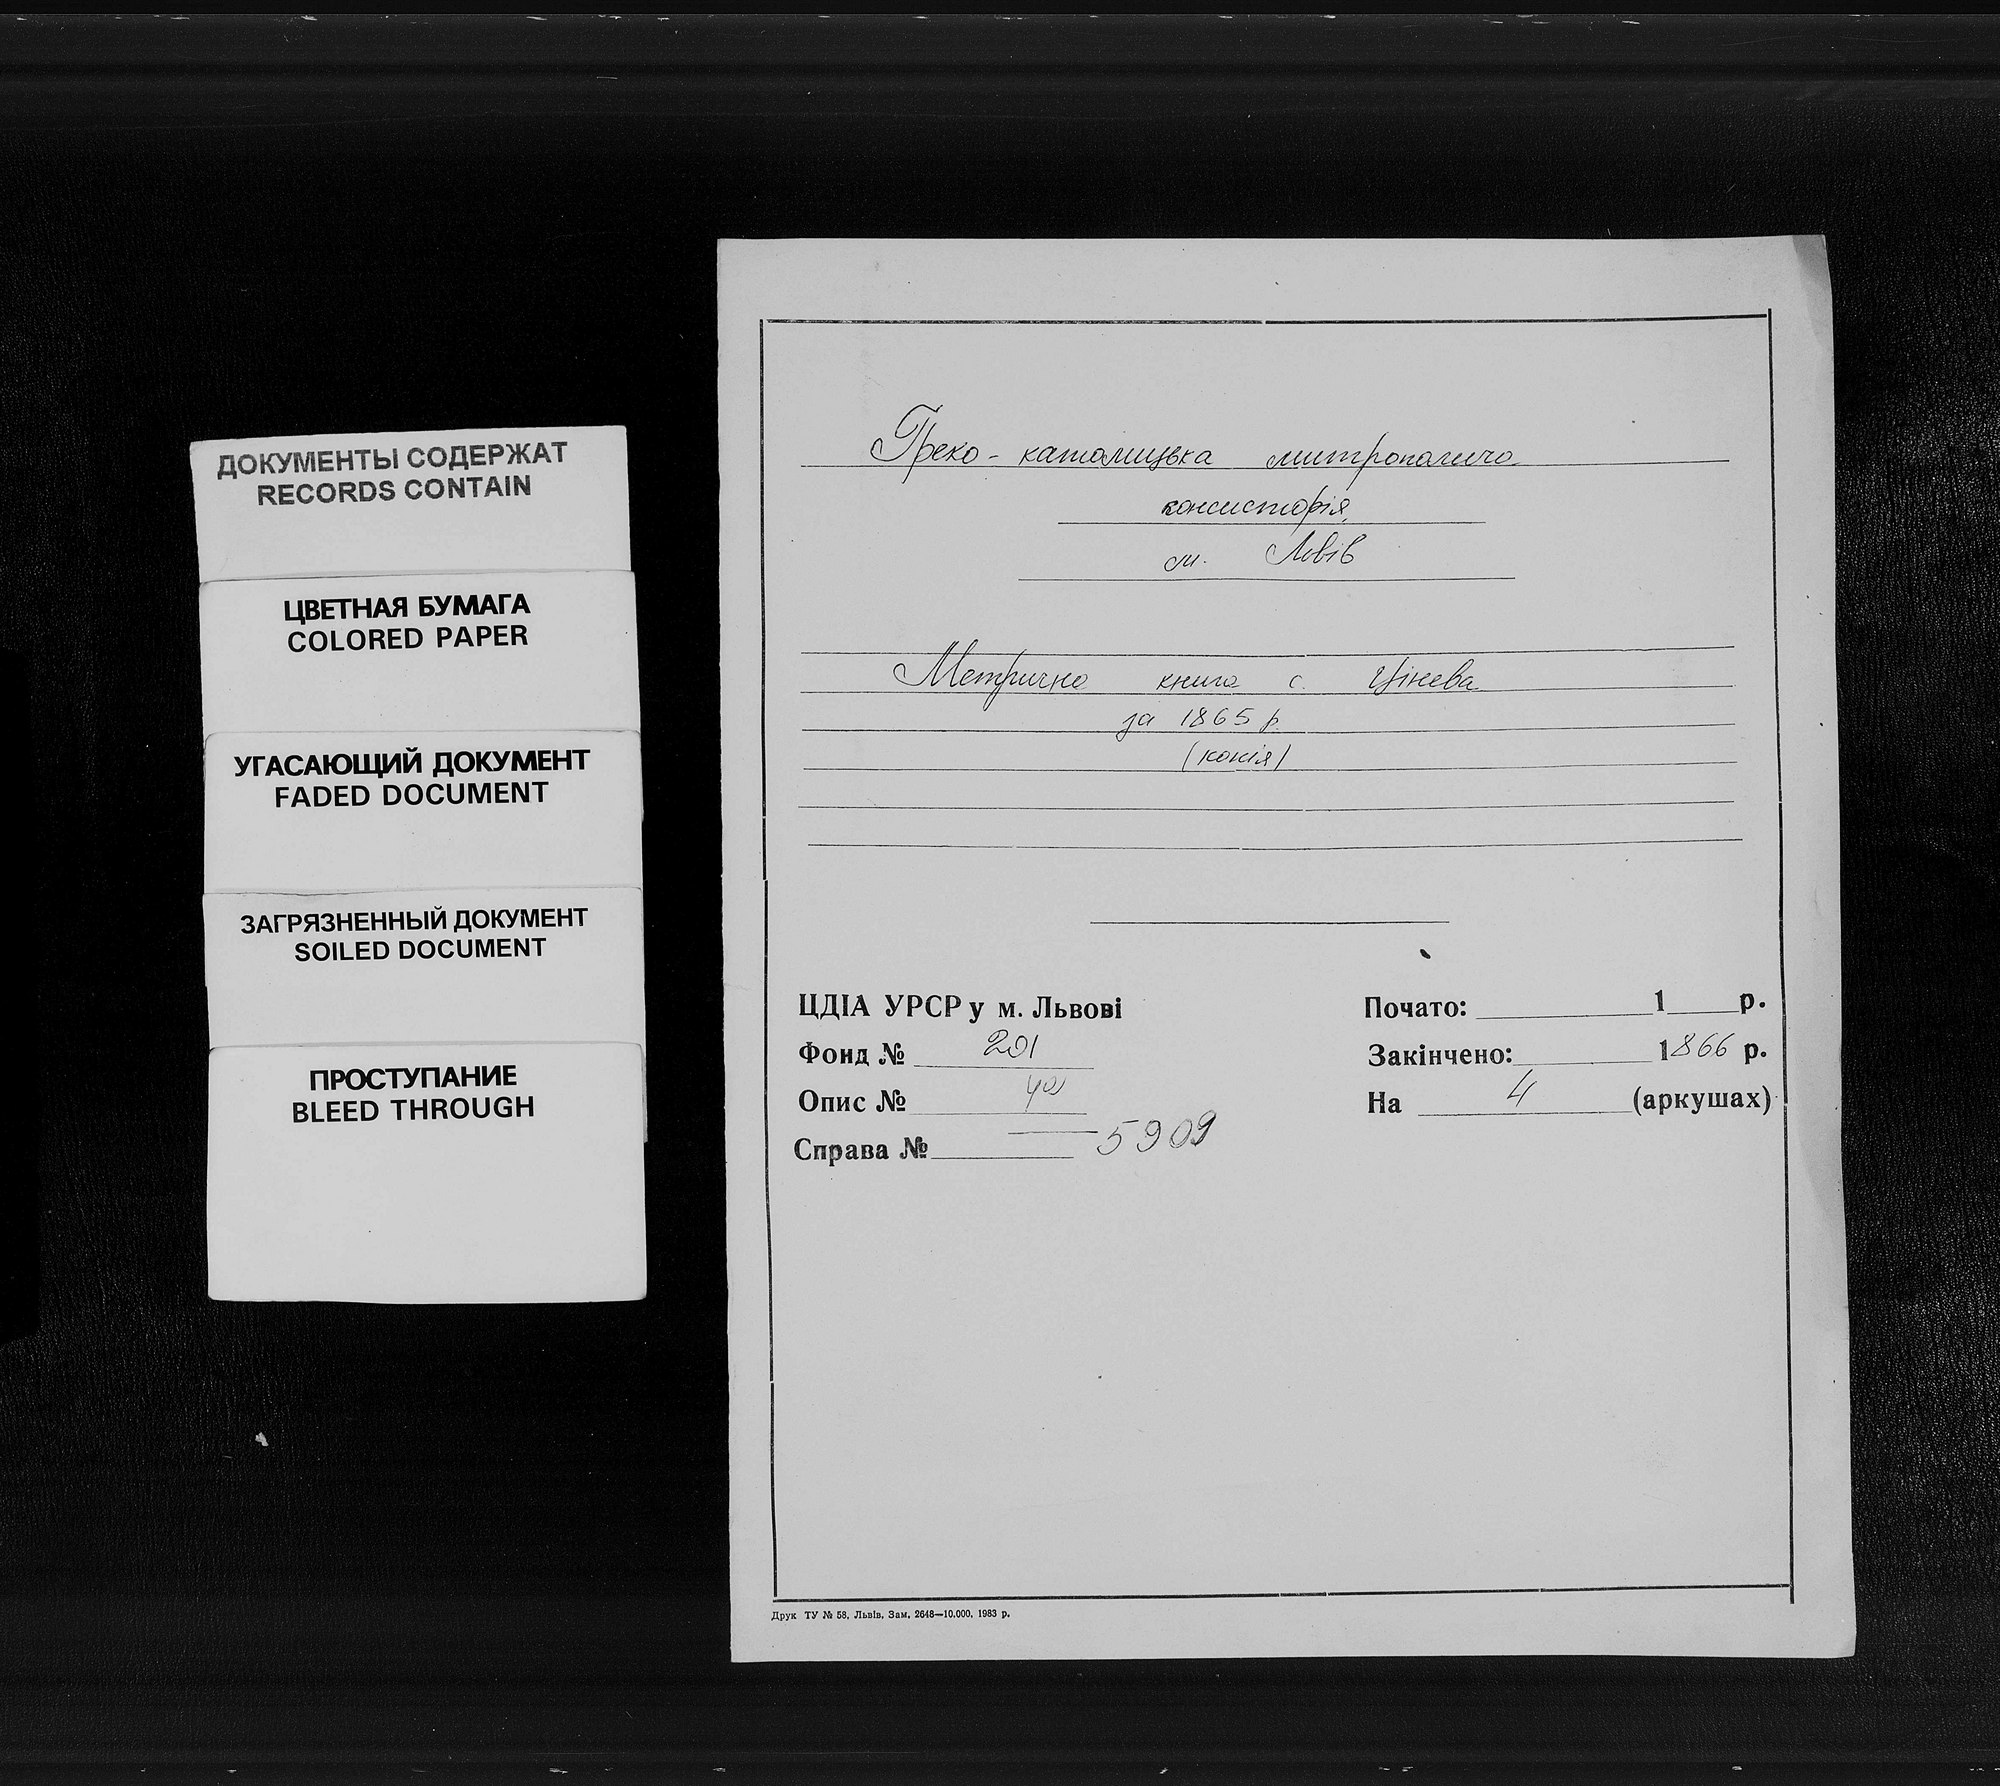 ДОКУМЕНТЫ СОДЕРЖАТ
RECORDS CONTAIN
ЦВЕТНАЯ БУМАГА
COLORED PAPER
УГАСАЮЩИЙ ДОКУМЕНТ
FADED DOCUMENT
ЗАГРЯЗНЕННЫЙ ДОКУМЕНТ
SOILED DOCUMENT
ПРОСТУПАНИЕ
BLEED THROUGH
Греко-католицька митрополича
консисторія,
м. Львів
Метрична книга с. Цінева
за 1865 р.
(копія)
ЦДІА УРСР у м. Львові
Фонд № 201
Опис № 4а
Справа № 5909
Почато: 1 р.
Закінчено: 1866 р.
На 4 (аркушах)
Друк ТУ № 58, Львів, Зам. 2648—10.000. 1983 р.